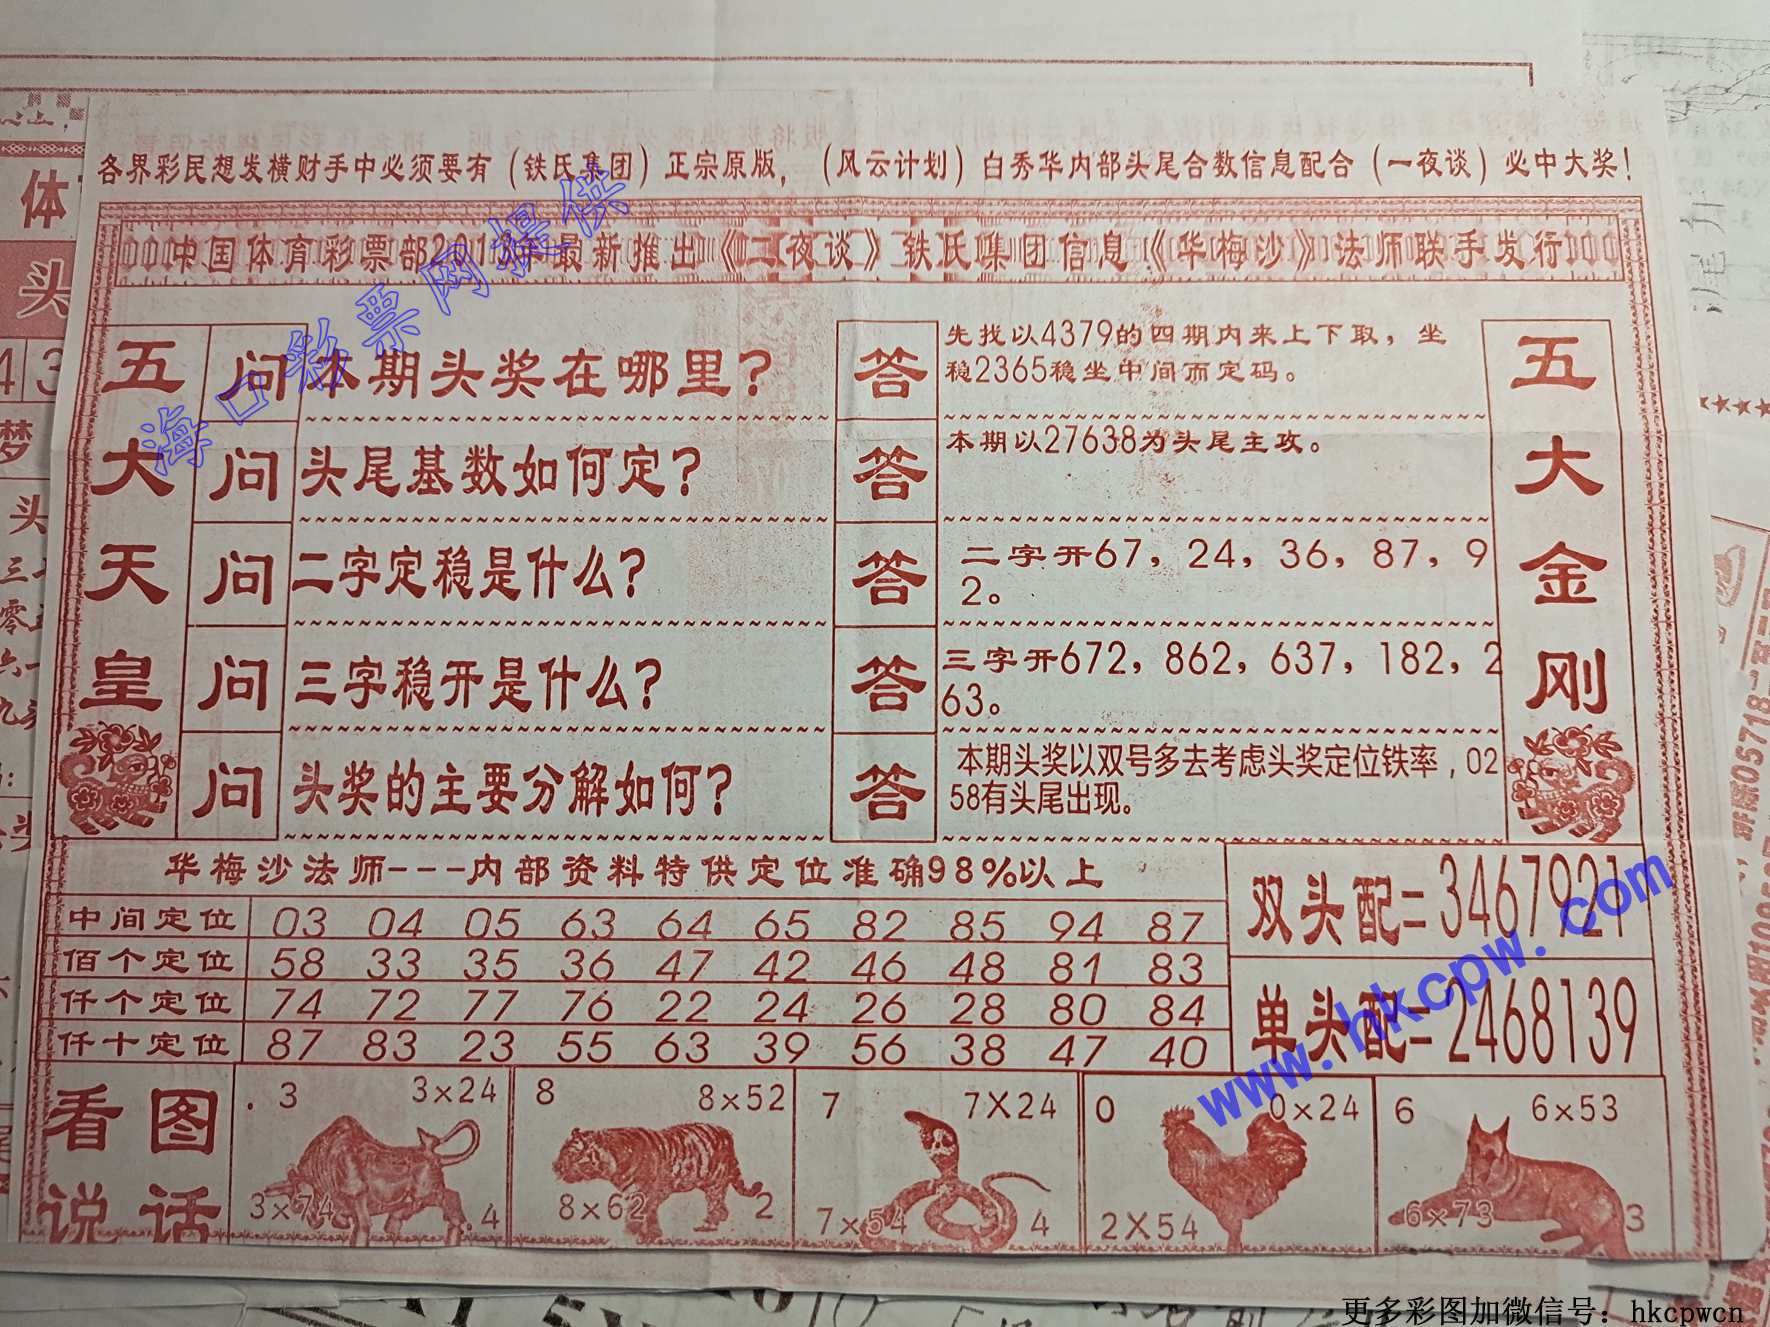 各界彩民想发横财手中必须要有（铁氏集团）正宗原版，（风云计划）白秀华内部头尾合数信息配合（一夜谈）必中大奖！
中国体育彩票部2013年最新推出《二夜谈》铁氏集团信息《华梅沙》法师联手发行
海口彩票网提供
五大天皇
问 本期头奖在哪里？
答 先找以4379的四期内来上下取，坐
稳2365稳坐中间而定码。
问 头尾基数如何定？
答 本期以27638为头尾主攻。
问 二字定稳是什么？
答 二字开67，24，36，87，9
2。
问 三字稳开是什么？
答 三字开672，862，637，182，2
63。
问 头奖的主要分解如何？
答 本期头奖以双号多去考虑头奖定位铁率,02
58有头尾出现。
五大金刚
华梅沙法师---内部资料特供定位准确98%以上
中间定位 03 04 05 63 64 65 82 85 94 87
佰个定位 58 33 35 36 47 42 46 48 81 83
仟个定位 74 72 77 76 22 24 26 28 80 84
仟十定位 87 83 23 55 63 39 56 38 47 40
双头配=3467921
单头配=2468139
www.hkcpw.com
看图
说话
.3 3×24
3×74 .4
8 8×52
8×62 2
7 7X24
7×54 4
0 0×24
2X54
6 6×53
6×73 3
更多彩图加微信号：hkcpwcn